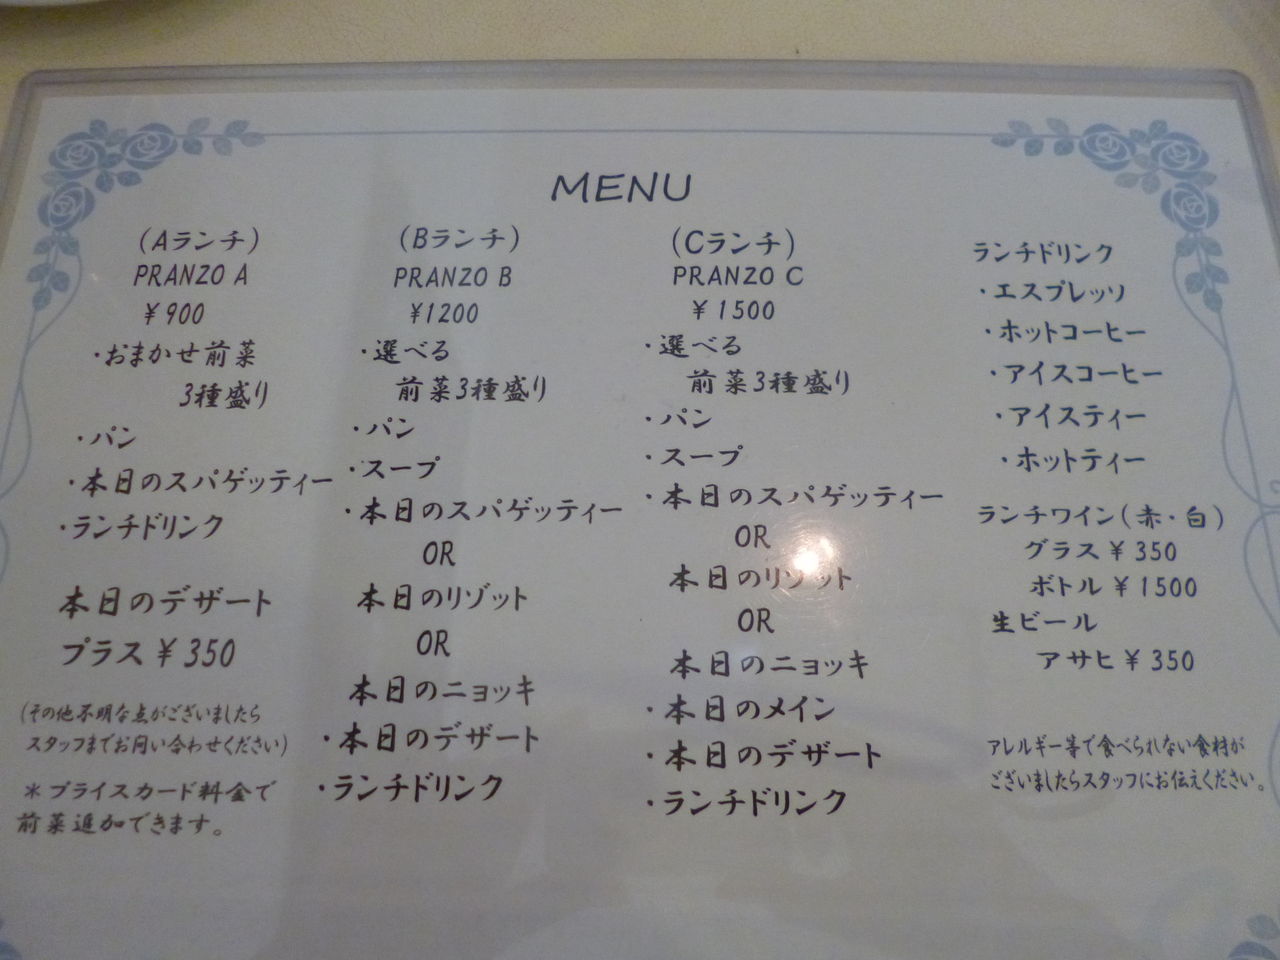 MENU
(Aランチ)
PRANZO A
¥900
・おまかせ前菜
3種盛り
・パン
・本日のスパゲッティー
・ランチドリンク
本日のデザート
プラス¥350
(その他不明な点がございましたら
スタッフまでお問い合わせください)
＊プライスカード料金で
前菜追加できます。
(Bランチ)
PRANZO B
¥1200
・選べる
前菜3種盛り
・パン
・スープ
・本日のスパゲッティー
OR
本日のリゾット
OR
本日のニョッキ
・本日のデザート
・ランチドリンク
(Cランチ)
PRANZO C
¥1500
・選べる
前菜3種盛り
・パン
・スープ
・本日のスパゲッティー
OR
本日のリゾット
OR
本日のニョッキ
・本日のメイン
・本日のデザート
・ランチドリンク
ランチドリンク
・エスプレッソ
・ホットコーヒー
・アイスコーヒー
・アイスティー
・ホットティー
ランチワイン(赤・白)
グラス¥350
ボトル¥1500
生ビール
アサヒ¥350
アレルギー等で食べられない食材が
ございましたらスタッフにお伝えください。